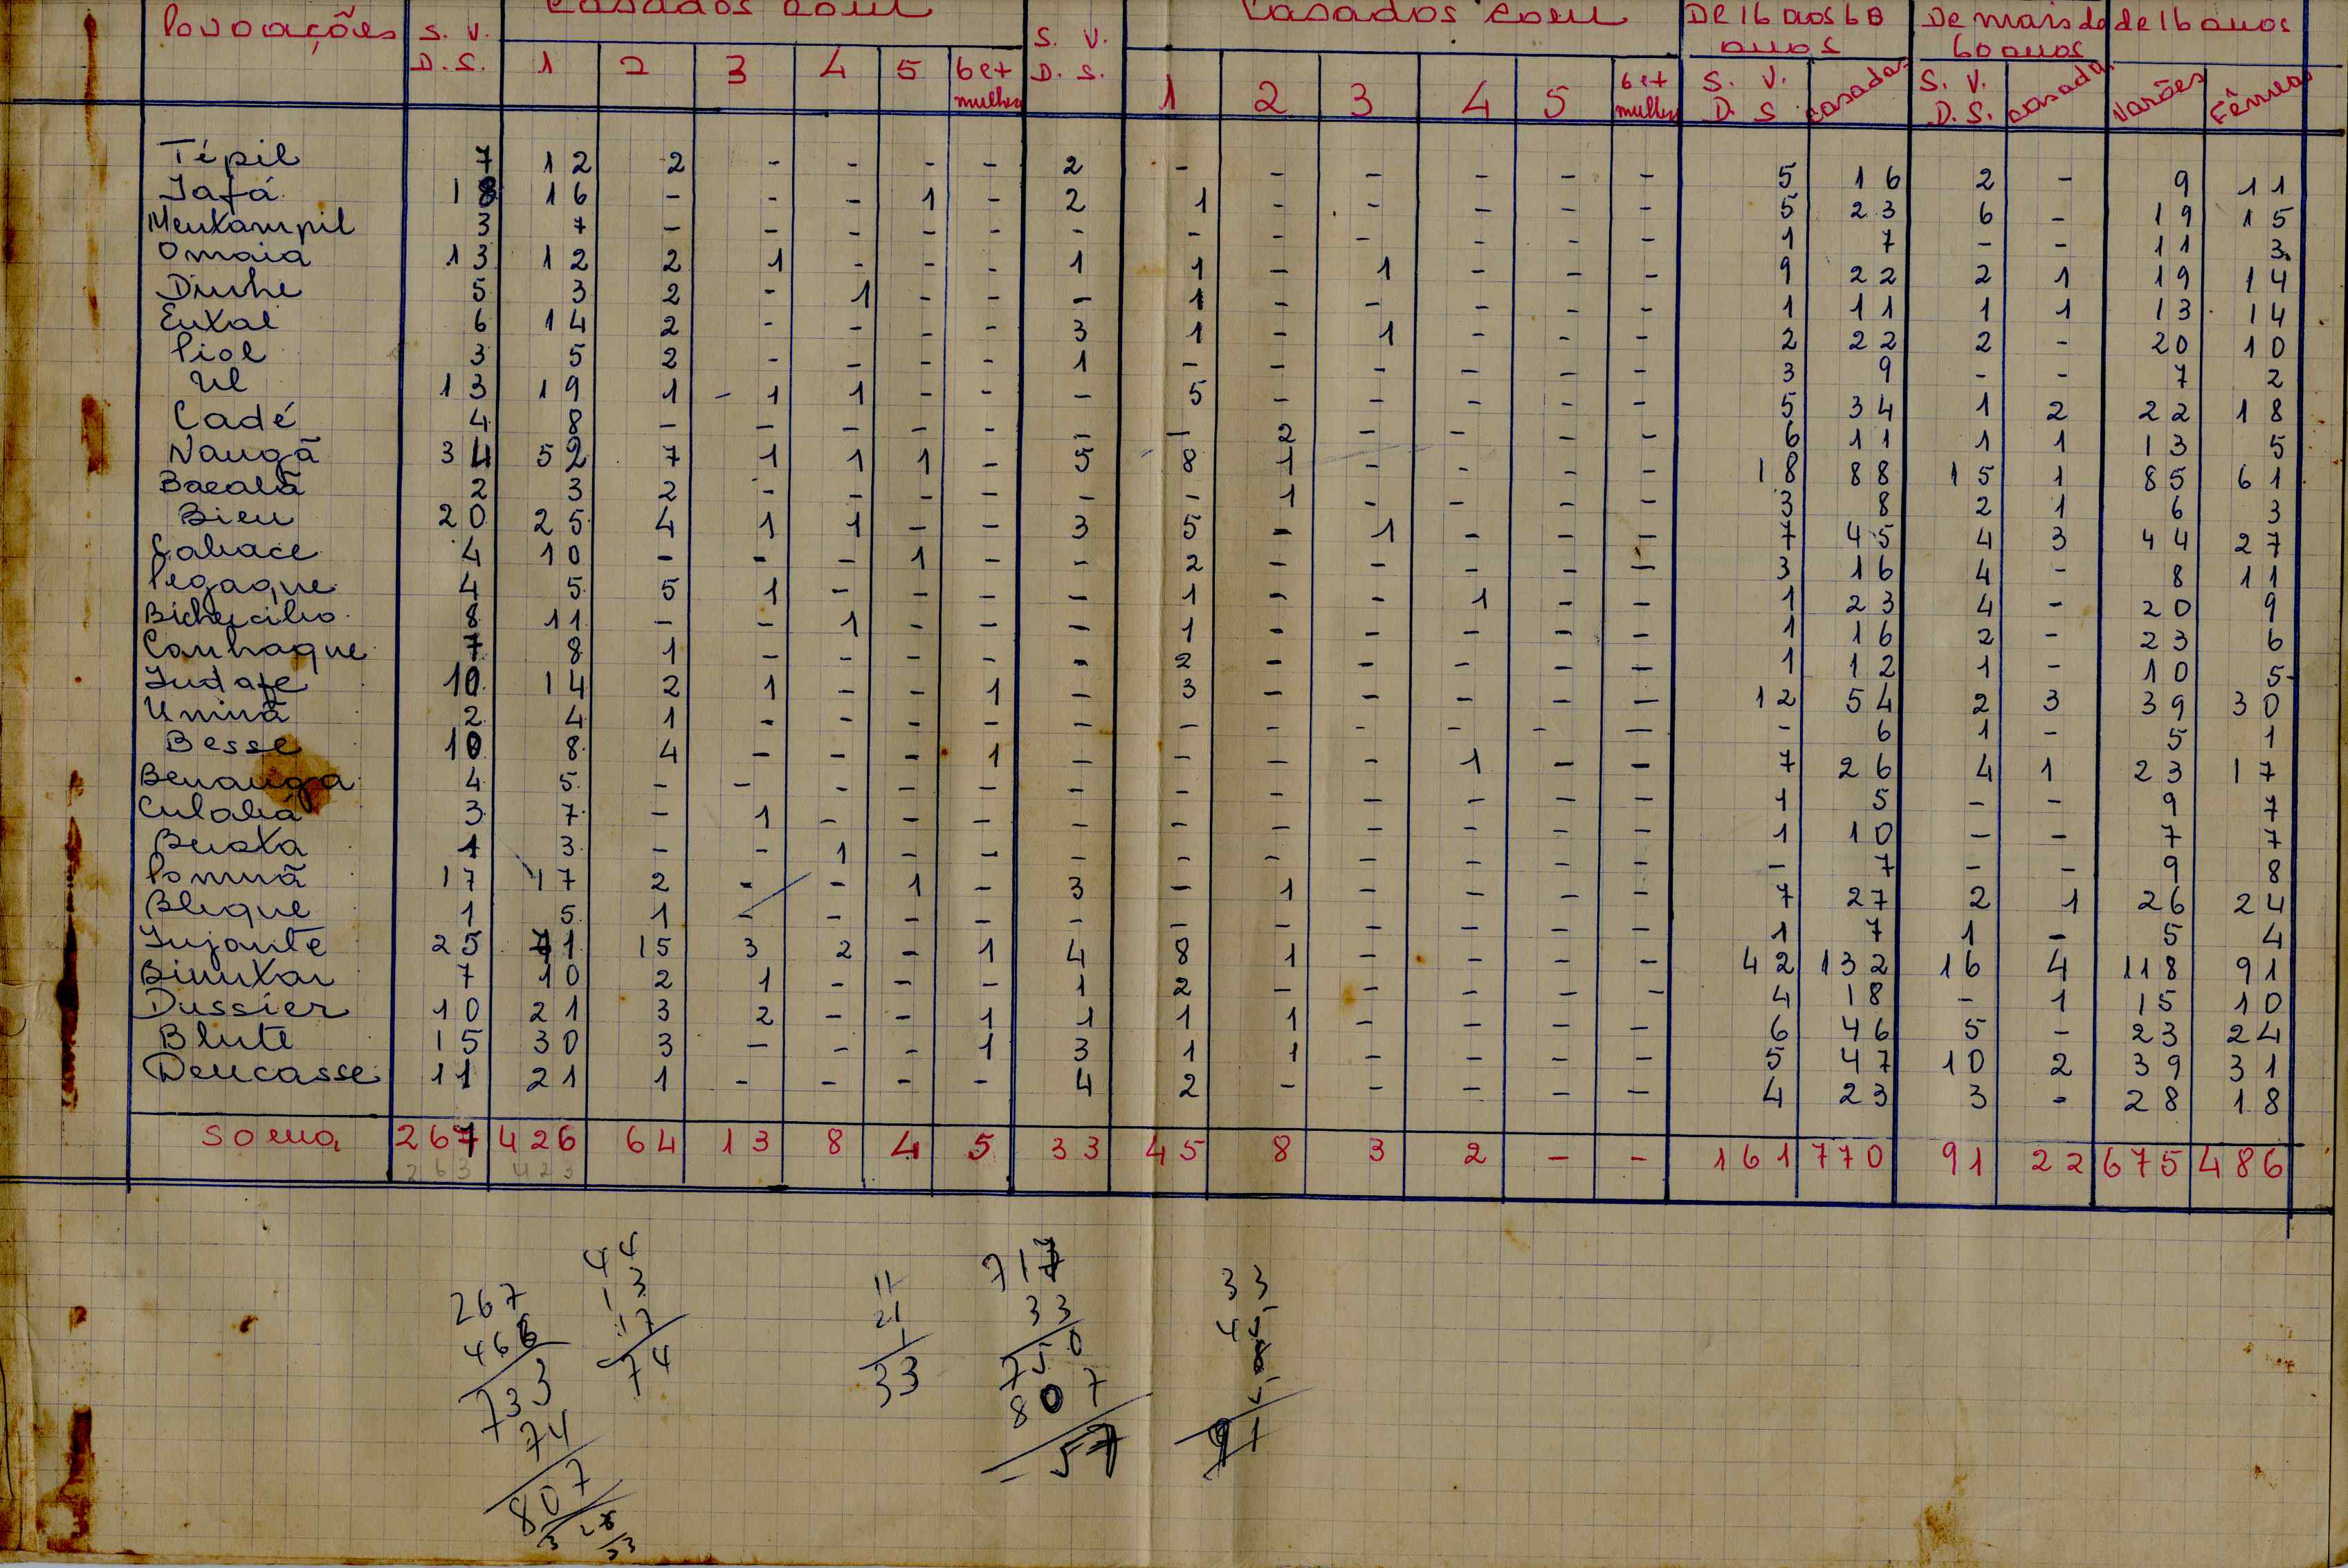 Povoações S. V. Casados com S. V. Casados com De 16 aos 60 De mais de de 16 anos
D. S. 1 2 3 4 5 6 e + D. S. anos 60 anos
mulheres 1 2 3 4 5 6 e + mulheres S. V. D. S Casadas S. V. D. S. Casadas Varões Fêmeas
Tépil 7 12 2 - - - - 2 - - - - - - 5 16 2 - 9 11
Jafá 18 16 - - - 1 - 2 1 - - - - - 5 23 6 - 19 15
Menkampil 3 7 - - - - - - - - - - - - 1 7 - - 11 3
Omaia 13 12 2 1 - - - 1 1 - 1 - - - 9 22 2 1 19 14
Dinhe 5 3 2 - 1 - - - 1 - - - - - 1 11 1 1 13 14
Enxal 6 14 2 - - - - 3 1 - 1 - - - 2 22 2 - 20 10
Piol 3 5 2 - - - - 1 - - - - - - 3 9 - - 7 2
Ul 13 19 1 - 1 1 - - - 5 - - - - - 5 34 1 2 22 18
Cadé 4 8 - - - - - - - 2 - - - - 6 11 1 1 13 5
Naugã 34 52 7 1 1 1 - 5 8 1 - - - - 18 88 15 1 85 61
Bacalã 2 3 2 - - - - - - 1 - - - - 3 8 2 1 6 3
Bieu 20 25 4 1 1 - - 3 5 - 1 - - - 7 45 4 3 44 27
Cabace 4 10 - - - 1 - - 2 - - - - - 3 16 4 - 8 11
Pegaque 4 5 5 1 - - - - 1 - - 1 - - 1 23 4 - 20 9
Bichencibo 8 11 - - 1 - - - 1 - - - - - 1 16 2 - 23 6
Canhaque 7 8 1 - - - - - 2 - - - - - 1 12 1 - 10 5
Indafe 10 14 2 1 - - 1 - 3 - - - - - 12 54 2 3 39 30
Uninã 2 4 1 - - - - - - - - - - - - 6 1 - 5 1
Besse 10 8 4 - - - 1 - - - - 1 - - 7 26 4 1 23 17
Benauga 4 5 - - - - - - - - - - - - 1 5 - - 9 7
Culabá 3 7 - 1 - - - - - - - - - - 1 10 - - 7 7
Benxa 1 3 - - 1 - - - - - - - - - - 7 - - 9 8
Pomunã 17 17 2 - - 1 - 3 - 1 - - - - 7 27 2 1 26 24
Blique 1 5 1 - - - - - - - - - - - 1 7 1 - 5 4
Jujante 25 71 15 3 2 - 1 4 8 1 - - - - 42 132 16 4 118 91
Binuxar 7 10 2 1 - - - 1 2 - - - - - 4 18 - 1 15 10
Dussier 10 21 3 2 - - 1 1 1 1 - - - - 6 46 5 - 23 24
Blute 15 30 3 - - - 1 3 1 1 - - - - 5 47 10 2 39 31
Dencasse 11 21 1 - - - - 4 2 - - - - - 4 23 3 - 28 18
Soma 267 426 64 13 8 4 5 33 45 8 3 2 - - 161 770 91 22 675 486
263 423
267
466
733
74
807
44
13
17
74
11
21
1
33
717
33
750
807
57
33
91